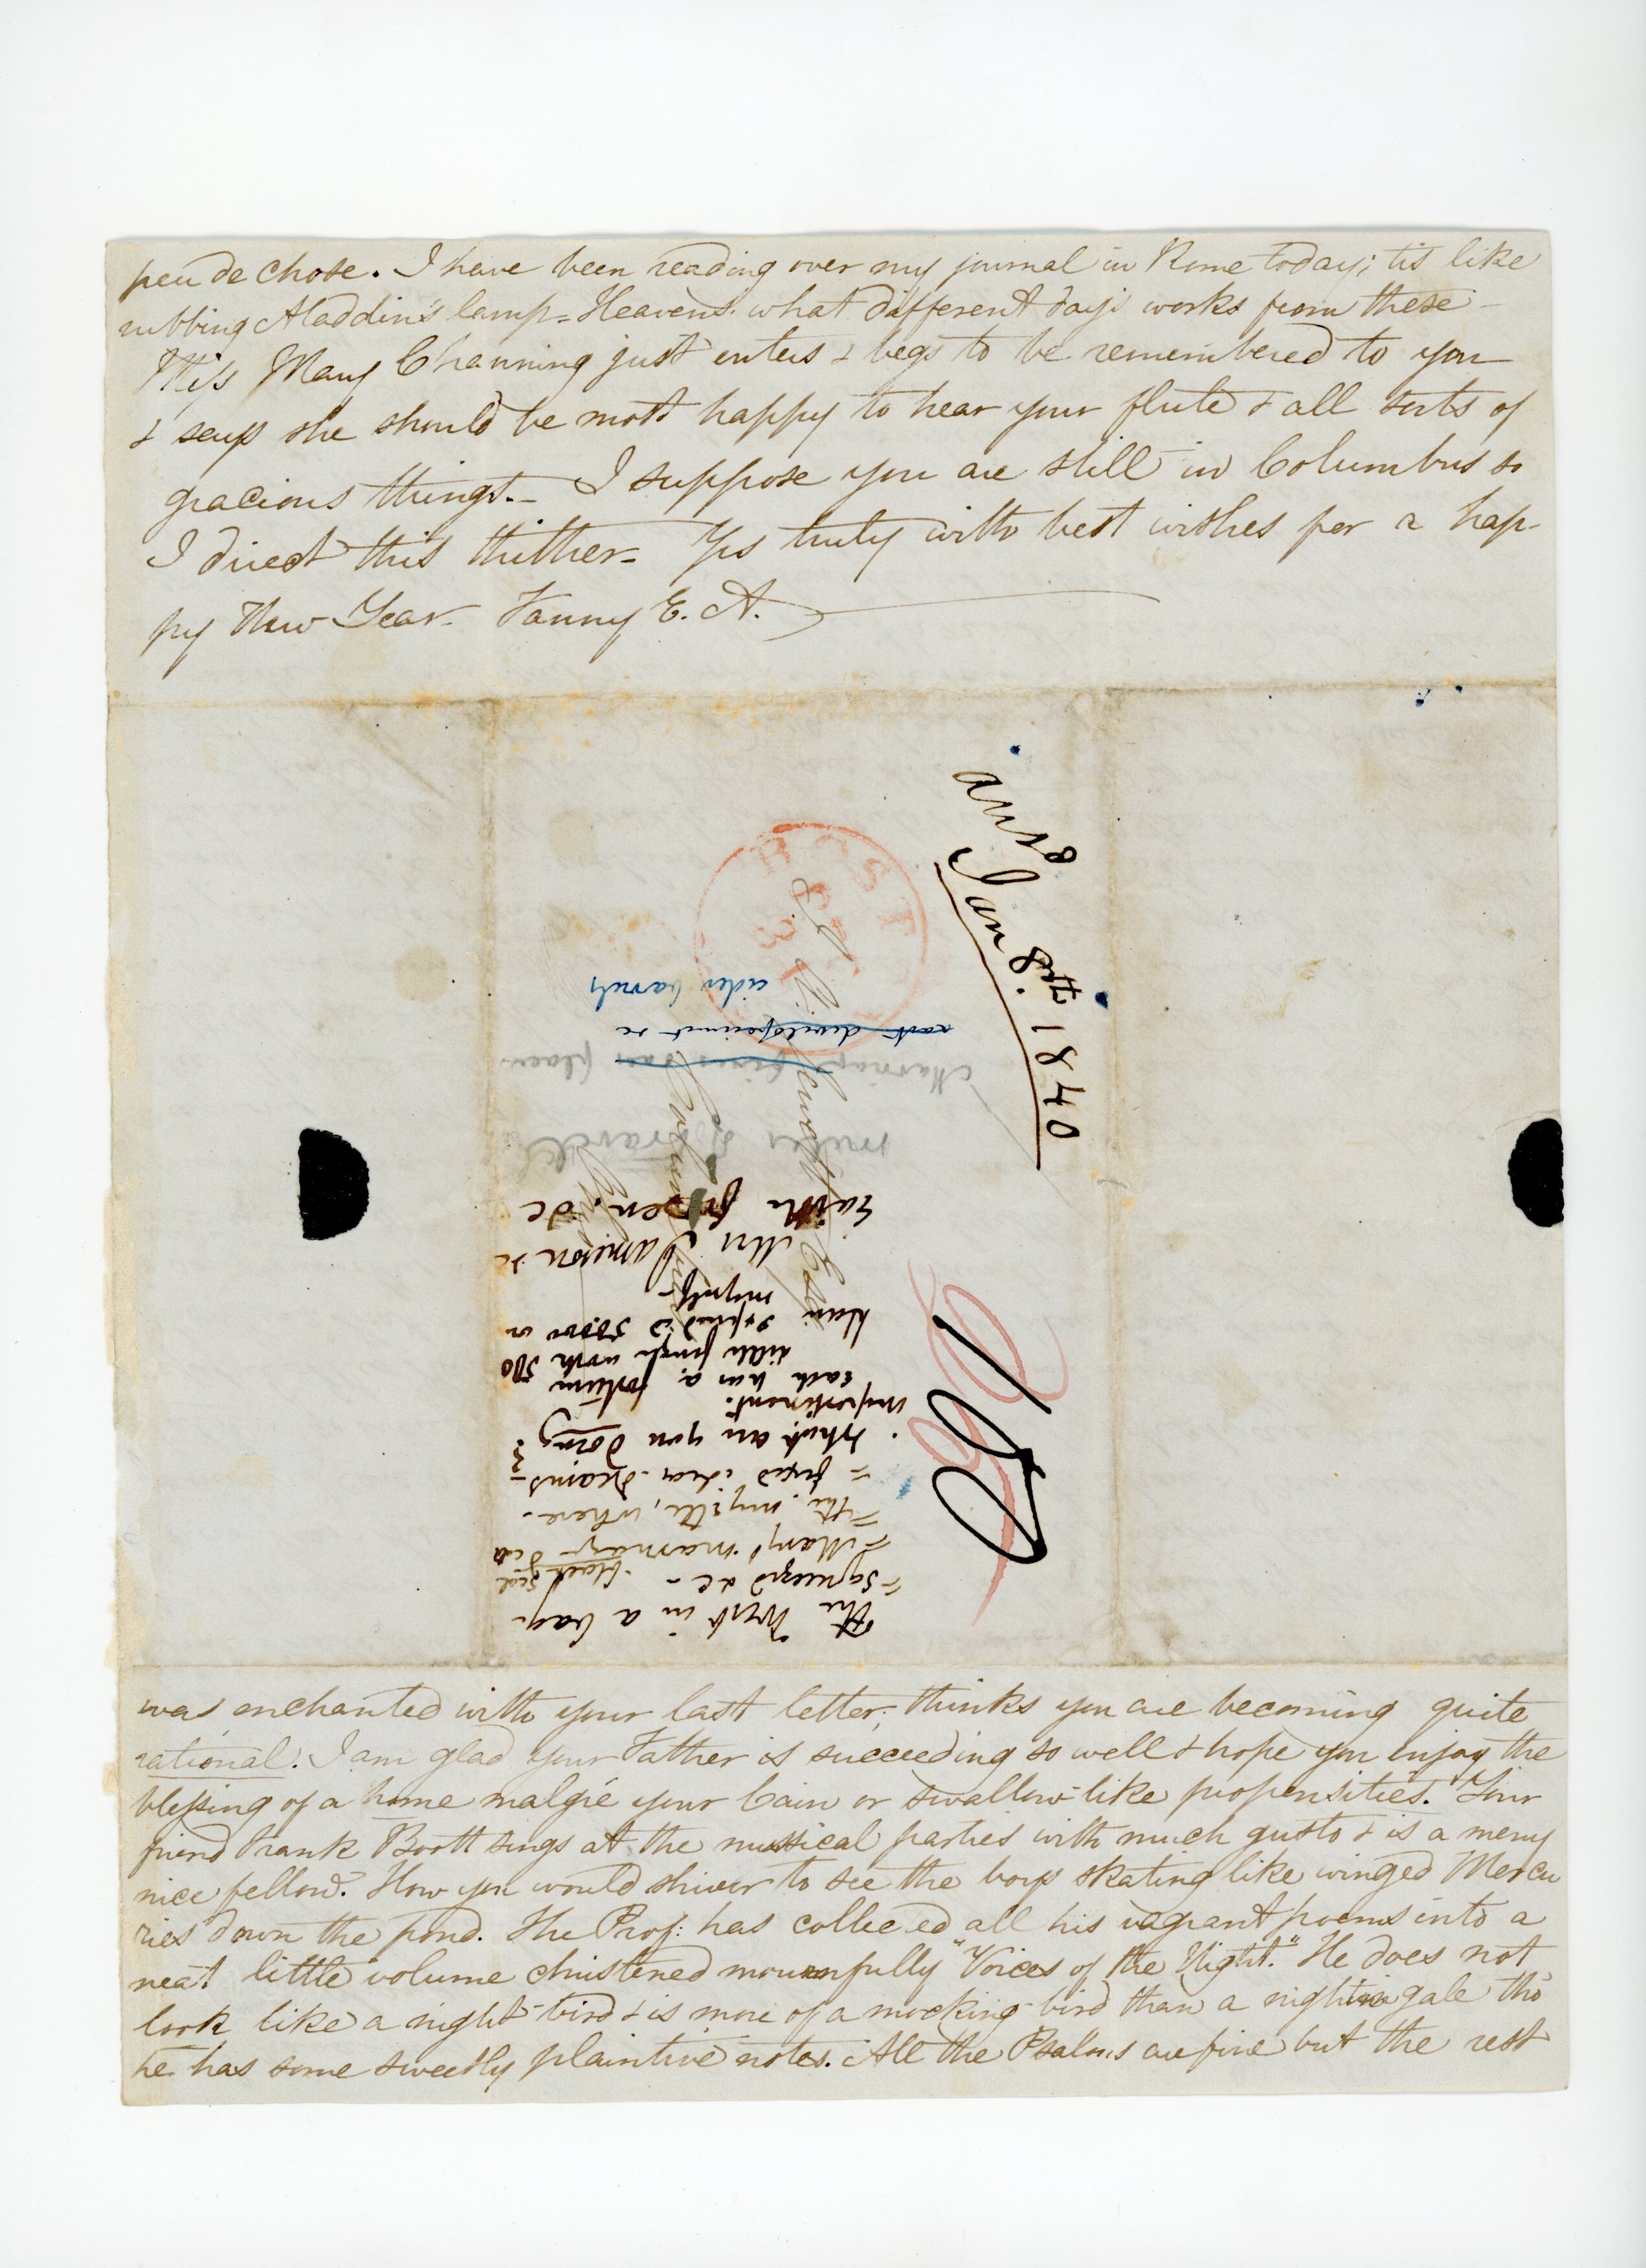 peu de chose. I have been reading over my journal in Rome today; tis like
rubbing Aladdin's lamp = Heavens. what different day's works from these –
Miss Mary Channing just enters & begs to be remembered to you
& says she should be most happy to hear your flute & all sorts of
gracious things. – I suppose you are still in Columbus so
I direct this thither = Yrs truly with best wishes for a hap-
py New Year – Fanny E. A.
ansd Jan 8th. 1840
cider barrels
Marriage
miles
Mrs Jameson &c
Earth frozen, &c
myself
expend 50.000 or
each has a fortune
impertinent.
what are you doing?
= fixed idea – dreams –
= the myrtle, where –
= Mary's marriage
= Squeezed &c – black seal
The West in a bag –
was enchanted with your last letter; thinks you are becoming quite
rational. I am glad your Father is succeeding so well & hope you enjoy the
blessing of a home malgré your Cain or swallow-like propensities. Your
friend Frank Boott sings at the musical parties with much gusto & is a merry
nice fellow. How you would shiver to see the boys skating like winged Mercu
ries down the pond. The Prof: has collected all his vagrant poems into a
neat little volume christened mournfully "Voices of the Night." He does not
look like a night-bird & is more of a mocking-bird than a nightingale tho'
he has some sweetly plaintive notes. All the Psalms are fine but the rest